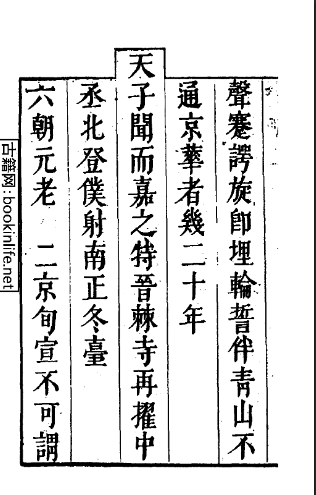 聲蹇諤旋即埋輪誓伴青山不
通京華者幾二十年
天子聞而嘉之特晉棘寺再擢中
丞北登僕射南正冬臺
六朝元老　二京旬宣不可謂
古籍网:bookinlife.net